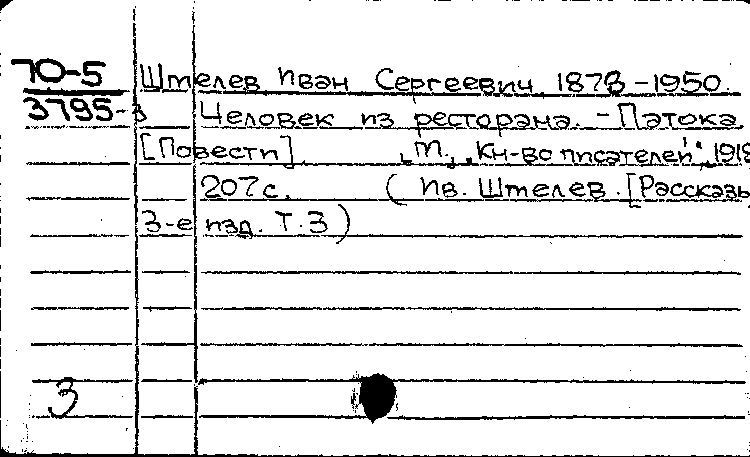 70-5
3795-3
Штелев Иван Сергеевич 1878-1950.
Человек из ресторана. - Патока.
[Повести]. М., "Кн-во писателей", 1918
207 с. (Ив. Штелев. [Рассказы
3-е изд. Т. 3)
3